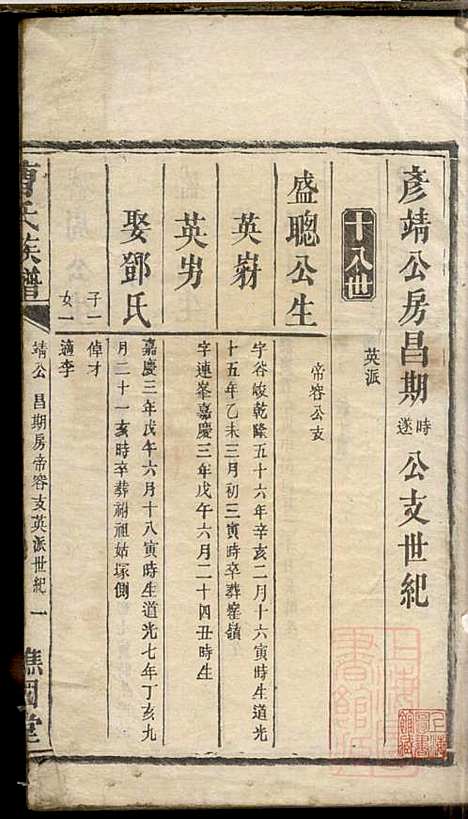 彥靖公房昌期時遂公支世紀
十八世
英派
盛聰公生
帝容公支
英嶟
字谷峻乾隆五十六年辛亥二月十六寅時生道光
十五年乙未三月初三寅時卒葬窰嶺
英男
字連峯嘉慶三年戊午六月二十四丑時生
娶鄧氏
嘉慶三年戊午六月十八寅時生道光七年丁亥九
月二十一亥時卒葬祔祖姑塚側
子一
倬才
女一
適李
曹氏族譜
靖公昌期房帝容支英派世紀
一
譙國堂